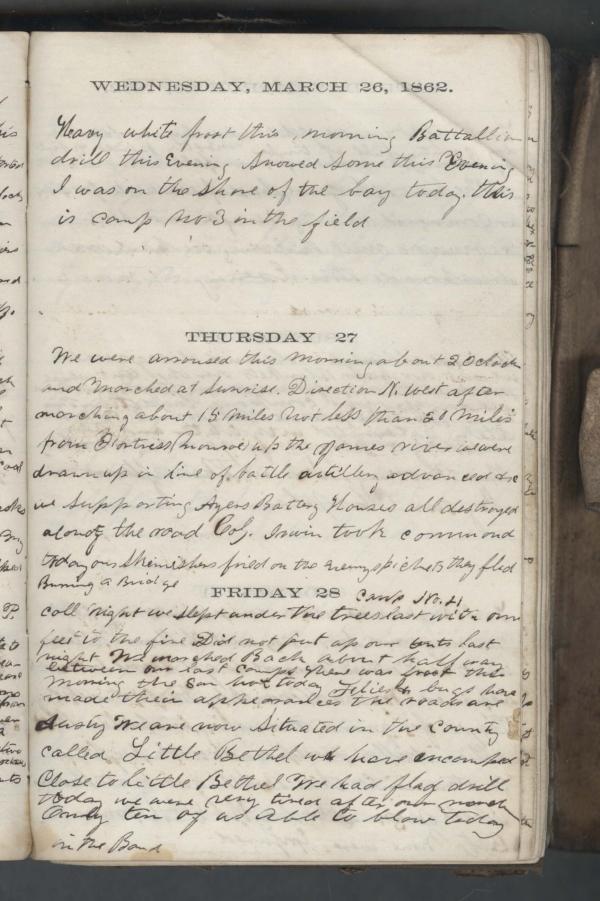 WEDNESDAY, MARCH 26, 1862.
Heavy white frost this morning Battallion
drill this Evening Snowed Some this Evening
I was on the Shore of the bay today. this
is camp No 3 in the field
THURSDAY 27
We were arroused this morning about 2 Oclock
and Marched at Sunrise. Direction N. West after
marching about 15 miles Not less than 20 Miles
from Fortress Monroe up the James river we were
drawn up in line of battle artillery advanced &c
we Supporting Ayers Battery Houses all destroyed
along the road Col. Irwin took command
today our Skirmishers fried on the Enemys pickets they fled
Burning a Bridge
FRIDAY 28 Camp No. 4
coll night we Slept under the trees last with our
feet to the fire Did not put up our tents last
night We marched Back about half way
between our last camps there was frost this
morning the Sun hot today Flies & bugs have
made their appearances the roads are
dusty We are now Situated in the County
called Little Bethel we have encamped
Close to little Bethel We had flag drill
today we were very tired after our march
Only ten of us Able to blow today
in the Band